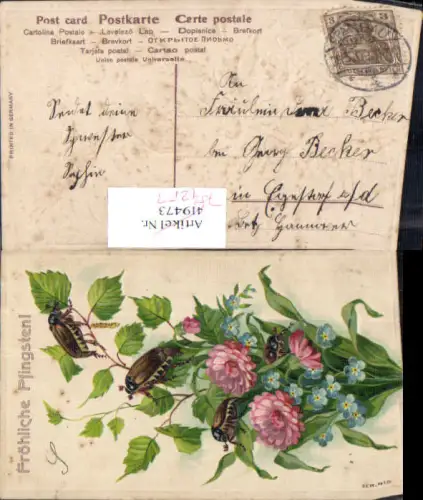 Post card Postkarte Carte postale
Cartolina Postale – Levelező Lap — Dopisnice — Brefkort
Briefkaart – Brevkort – ОТКРЫТОЕ ПИСЬМО
Tarjeta postal — Cartao postal
Union postale Universelle
PRINTED IN GERMANY
Sendet deine
Schwester
Sophie
An
Fräulein Becker
bei Georg Becker
in Egestorf a/d
Bez. Hannover
Artikel Nr.
419473
Fröhliche Pfingsten!